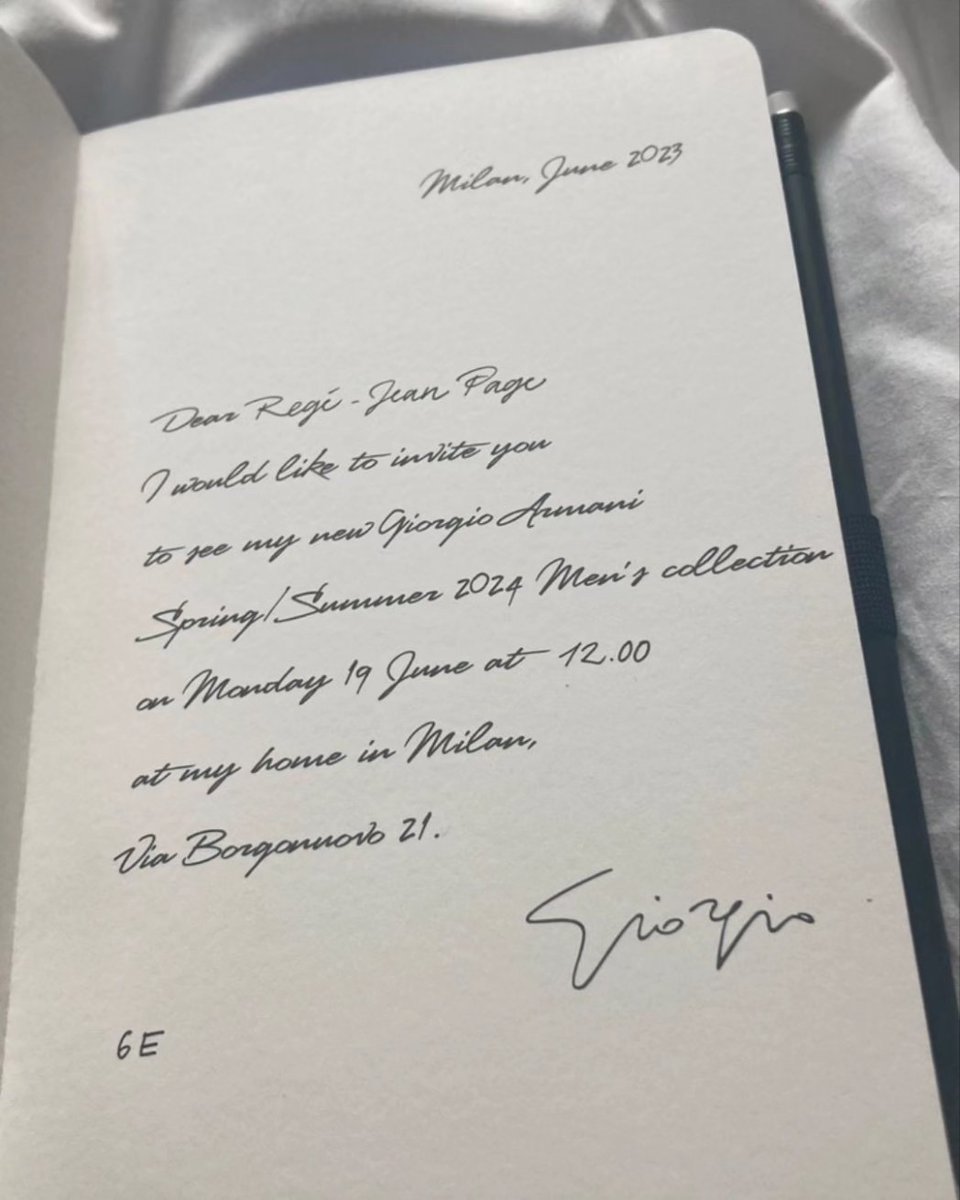 Milan, June 2023
Dear Regé-Jean Page
I would like to invite you
to see my new Giorgio Armani
Spring/Summer 2024 Men's collection
on Monday 19 June at 12.00
at my home in Milan,
Via Borgonuovo 21.
Giorgio
6E